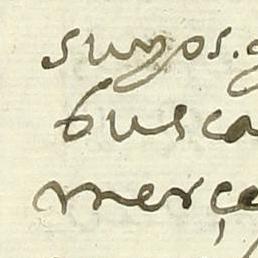 suyos.
busca
merçe